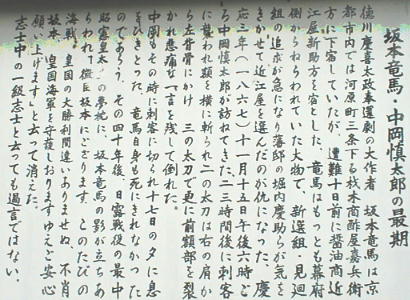 坂本竜馬・中岡慎太郎の最期
徳川慶喜太政奉還劇の大作者 坂本竜馬は京
都市内では河原町三条下る材木商酢屋嘉兵衛
方に下宿していたが、遭難十日前に醤油商近
江屋新助方を宿とした。竜馬はもっとも幕府
側からねらわれていた大物で、新選組・見廻
組の追求が急になり藩邸の堀内慶助らが気を
きかせて近江屋を選んだのが仇になった。慶
応三年(一八六七)十一月十五日午後六時ご
ろ中岡慎太郎が訪ねてきた。二三時間後に刺客
に襲われ額を横に斬られ二の太刀は右の肩か
ら左背骨にかけ 三の太刀で更に前額部を裂
かれ悲痛な一言を残して倒れた。
中岡もその時に刺客に切られ十七日の夕に息
をひきとった。竜馬自身も死にきれなかった
のであろう、その四十年後、日露戦役の最中
昭憲皇太后の夢枕に、坂本竜馬の影が立ちあ
らわれ「微臣坂本にござります。このたびの
海戦、皇国の大勝利間違いありませぬ、不肖
坂本、皇国海軍を守護しおりますゆえご安心
願い上げます」と云って消えた。
志士中の一級志士と云っても過言ではない。